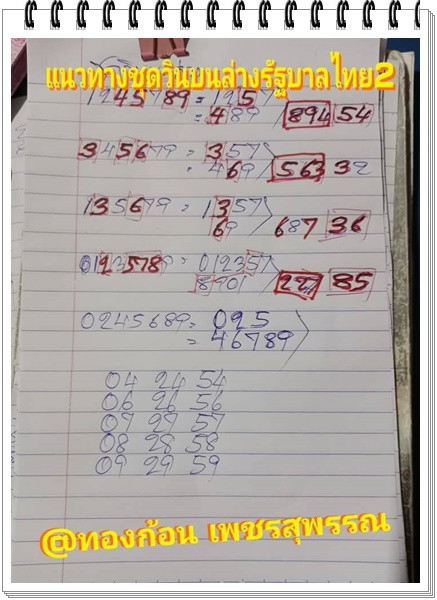 แนวทางชุดวินบนล่างรัฐบาลไทย2
1245789 = 125
= 489 894 54
345679 = 357
= 469 563 32
135679 = 1357
69 687 36
01235789 = 012357
8901 227 85
0245689 = 025
= 46789
04 24 54
06 26 56
07 27 57
08 28 58
09 29 59
@ทองก้อน เพชรสุพรรณ